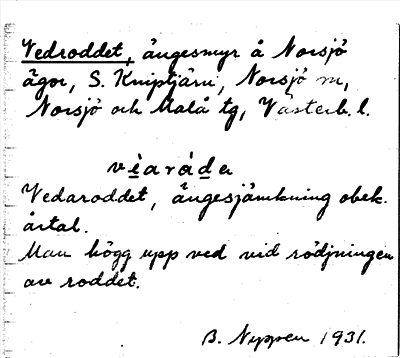 Vedroddet, ängesmyr å Norsjö
ägor, S. Kniptjärn, Norsjö sn,
Norsjö och Malå tg, Västerb. l.
vèaràdɐ
Vedaroddet, ängesjämkning obek.
årtal.
Man högg upp ved vid rödjningen
av roddet.
B. Nyppen 1931.